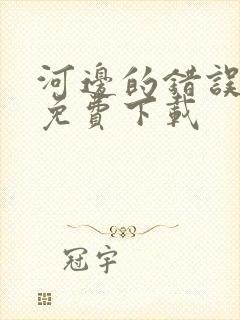 河邊的錯誤
免費下載
冠宇